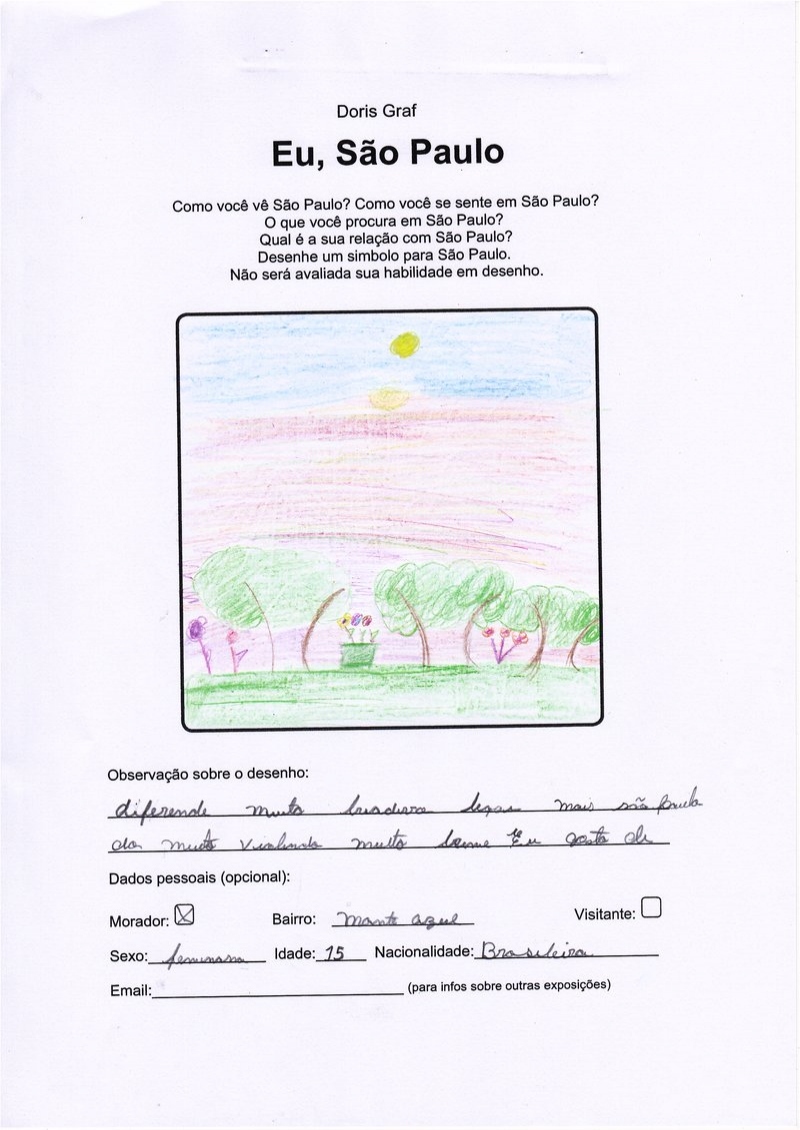 Doris Graf
Eu, São Paulo
Como você vê São Paulo? Como você se sente em São Paulo?
O que você procura em São Paulo?
Qual é a sua relação com São Paulo?
Desenhe um simbolo para São Paulo.
Não será avaliada sua habilidade em desenho.
Observação sobre o desenho:
diferende muito mais são paulo
muito muito Eu gosto de
Dados pessoais (opcional):
Morador: Bairro: Monte azul Visitante:
Sexo: Idade: 15 Nacionalidade: Brasileira
Email: (para infos sobre outras exposições)